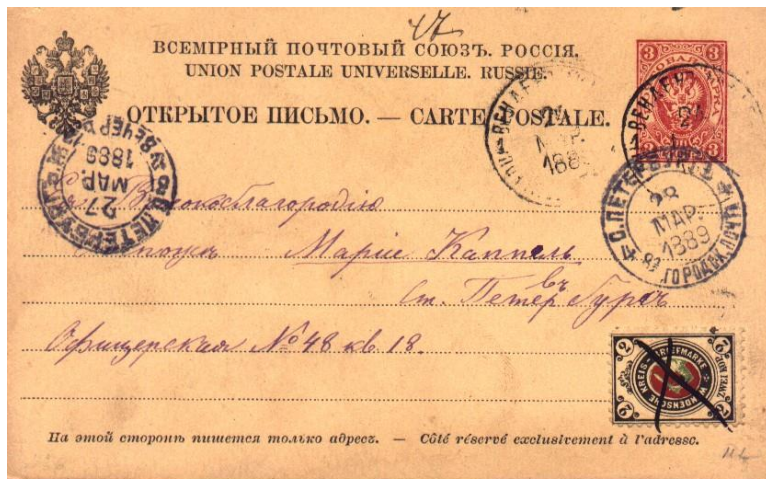 47
ВСЕМІРНЫЙ ПОЧТОВЫЙ СОЮЗЪ. РОССІЯ.
UNION POSTALE UNIVERSELLE. RUSSIE.
ОТКРЫТОЕ ПИСЬМО. — CARTE POSTALE.
3 3
3 3
ВЕНДЕНЪ
МАР.
1889
С. ПЕТЕРБУРГЪ
27
МАР
1889
С. ПЕТЕРБУРГЪ
28
МАР.
1889
ГОРОДСК. ПОЧТА
Высокоблагородію
Маріи Каппель
въ
Ст. Петербургъ
Офицерская №48 кв 18.
2 2
2 2
BRIEFMARKE WENDENSCHE KREIS
На этой сторонѣ пишется только адресъ. — Côté réservé exclusivement à l'adresse.